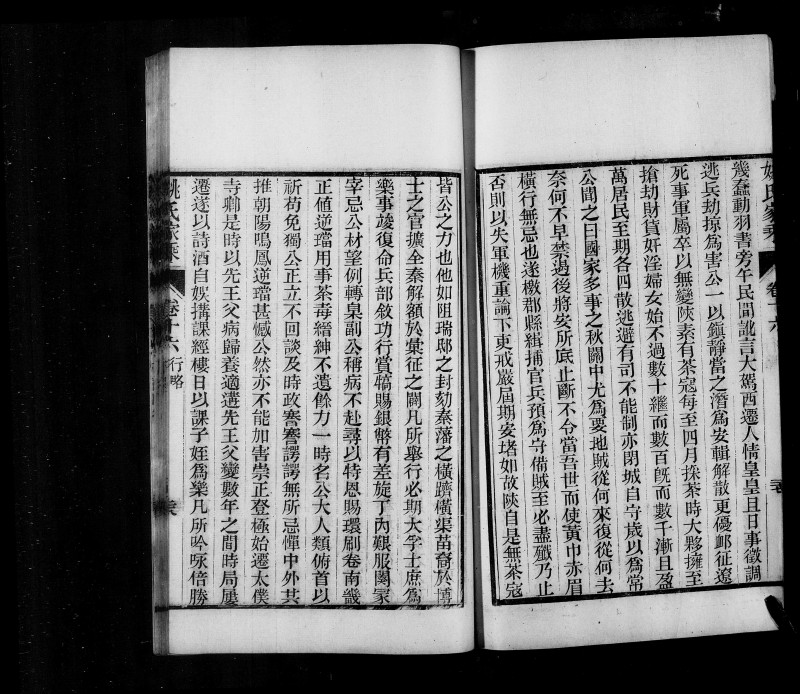 姚氏家乘 卷十六
幾蠢動羽書旁午民間訛言大駕西遷人情皇皇且日事徵調
逃兵劫掠為害公一以鎮靜當之潛為安輯解散更優邮征遼
死事軍屬卒以無變陝素有茶寇每至四月採茶時大夥擁至
搶劫財貨奸淫婦女始不過數十繼而數百旣而數千漸且盈
萬居民至期各四散逃避有司不能制亦閉城自守歲以為常
公聞之曰國家多事之秋關中尤為要地賊從何來復從何去
奈何不早禁遏後將安所底止斷不令當吾世而使黃巾赤眉
橫行無忌也遂檄郡縣緝捕官兵預為守備賊至必盡殲乃止
否則以失軍機重論下吏戒嚴屆期安堵如故陝自是無茶寇
皆公之力也他如阻瑞邸之封劾秦藩之橫躋橫渠苗裔於博
士之官擴全秦解額於彙征之闢凡所舉行必期大孚士庶為
樂事竣復命兵部敘功行賞犒賜銀幣有差旋丁內艱服闋冢
宰忌公材望例轉臬副公稱病不赴尋以特恩賜環刷卷南畿
正值逆璫用事荼毒縉紳不遺餘力一時名公大人類俯首以
祈苟免獨公正立不回談及時政謇謇諤諤無所忌憚中外共
推朝陽鳴鳳逆璫甚憾公然亦不能加害崇正登極始遷太僕
寺卿是時以先王父病歸養適遘先王父變數年之間時局屢
遷遂以詩酒自娛搆課經樓日以課子姪為樂凡所吟咏倍勝
姚氏家乘 卷十六 行略